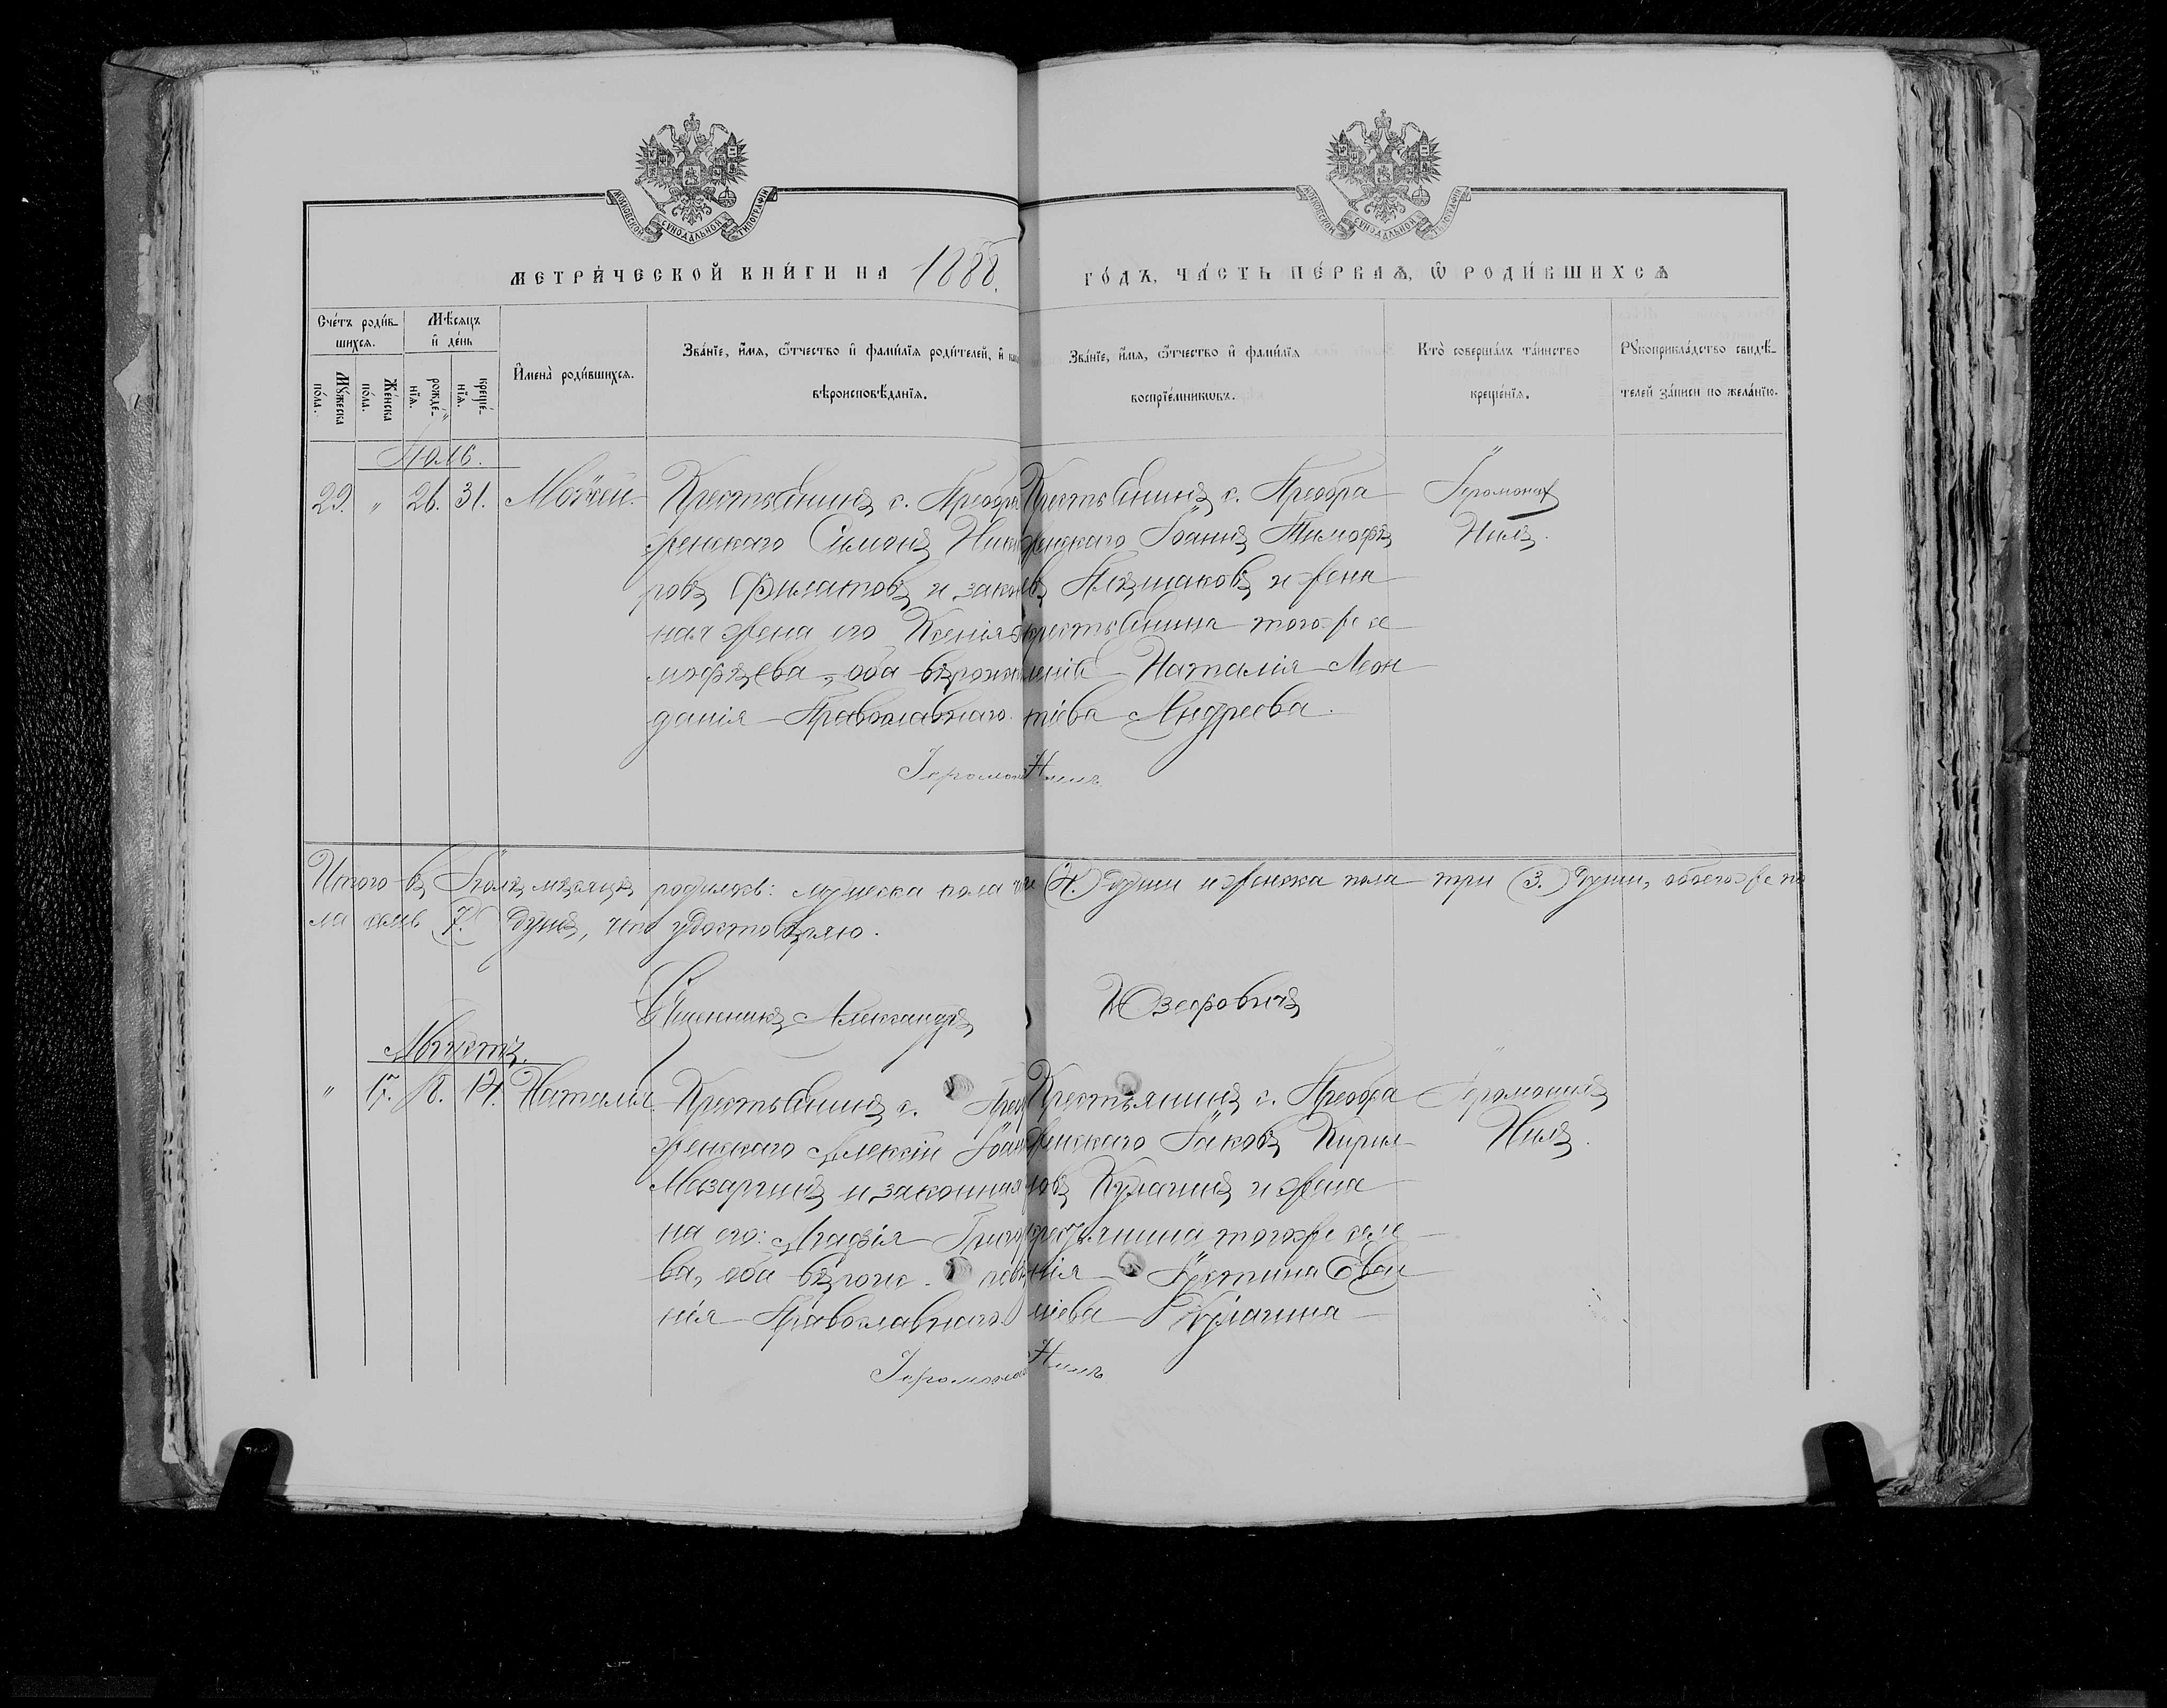 МОСКОВСКОЙ СѴНОДАЛЬНОЙ ТИПОГРАФІИ
МОСКОВСКОЙ СѴНОДАЛЬНОЙ ТИПОГРАФІИ
МЕТРИ́ЧЕСКОЙ КНИ́ГИ НА 1888.
ГО́ДЪ, ЧА́СТЬ ПЕ́РВАѦ, Ѡ҆ РОДИ́ВШИХСѦ
Сче́тъ роди́в-
шихсѧ.
Мꙋ́жеска
по́ла.
Же́нска
по́ла.
Мѣ́сѧцъ
и҆ де́нь
рожде́-
нїѧ.
креще́-
нїѧ.
И҆мена̀ роди́вшихсѧ.
Зва́нїе, и҆́мѧ, ѻ҆́тчество и҆ фами́лїѧ роди́телей, и҆
вѣроисповѣ́данїѧ.
Зва́нїе, и҆́мѧ, ѻ҆́тчество и҆ фами́лїѧ
воспрїе́мникѡвъ.
Кто̀ соверша́лъ та́инство
креще́нїѧ.
Рꙋкоприкла́дство свидѣ́-
телей за́писи по жела́нїю.
Іюль.
29. " 26. 31. Моѵсей.
Крестьянинъ с. Преобра
женскаго Симонъ Ники
ровъ Филатовъ и закон
ная жена его Ксенія
мофѣева, оба вѣроиспо
данія Православнаго.
Крестьянинъ с. Преобра
женскаго Іоаннъ Тимофѣ
въ Плѣшаковъ и жена
крестьянина тогоже се
ленія Наталія Леон
тіева Андреева.
Іеромонах
Нилъ.
Іеромонахъ Нилъ
Итого въ Іюлѣ мѣсяцѣ родилось: мужеска пола (4.) души и женска пола три (3.) души, обоегоже по
ла семь 7. душъ, что удостовѣряю.
Священникъ Александръ Юзефовичъ
Августъ.
" 17. 8. 14. Наталія.
Крестьянинъ с. Преоб
женскаго Алексій Іоан
Мазаргинъ и законная
на его: Агафія Григор
ва, оба вѣроис- повѣ
нія Православнаго
Крестьянинъ с. Преобра
женскаго Іаковъ Кирил
ловъ Кулагинъ и жена
крестьянина тогоже селе
нія Іустина Еван
ніева Кулагина
Іеромонахъ
Нилъ.
Іеромонахъ Нилъ